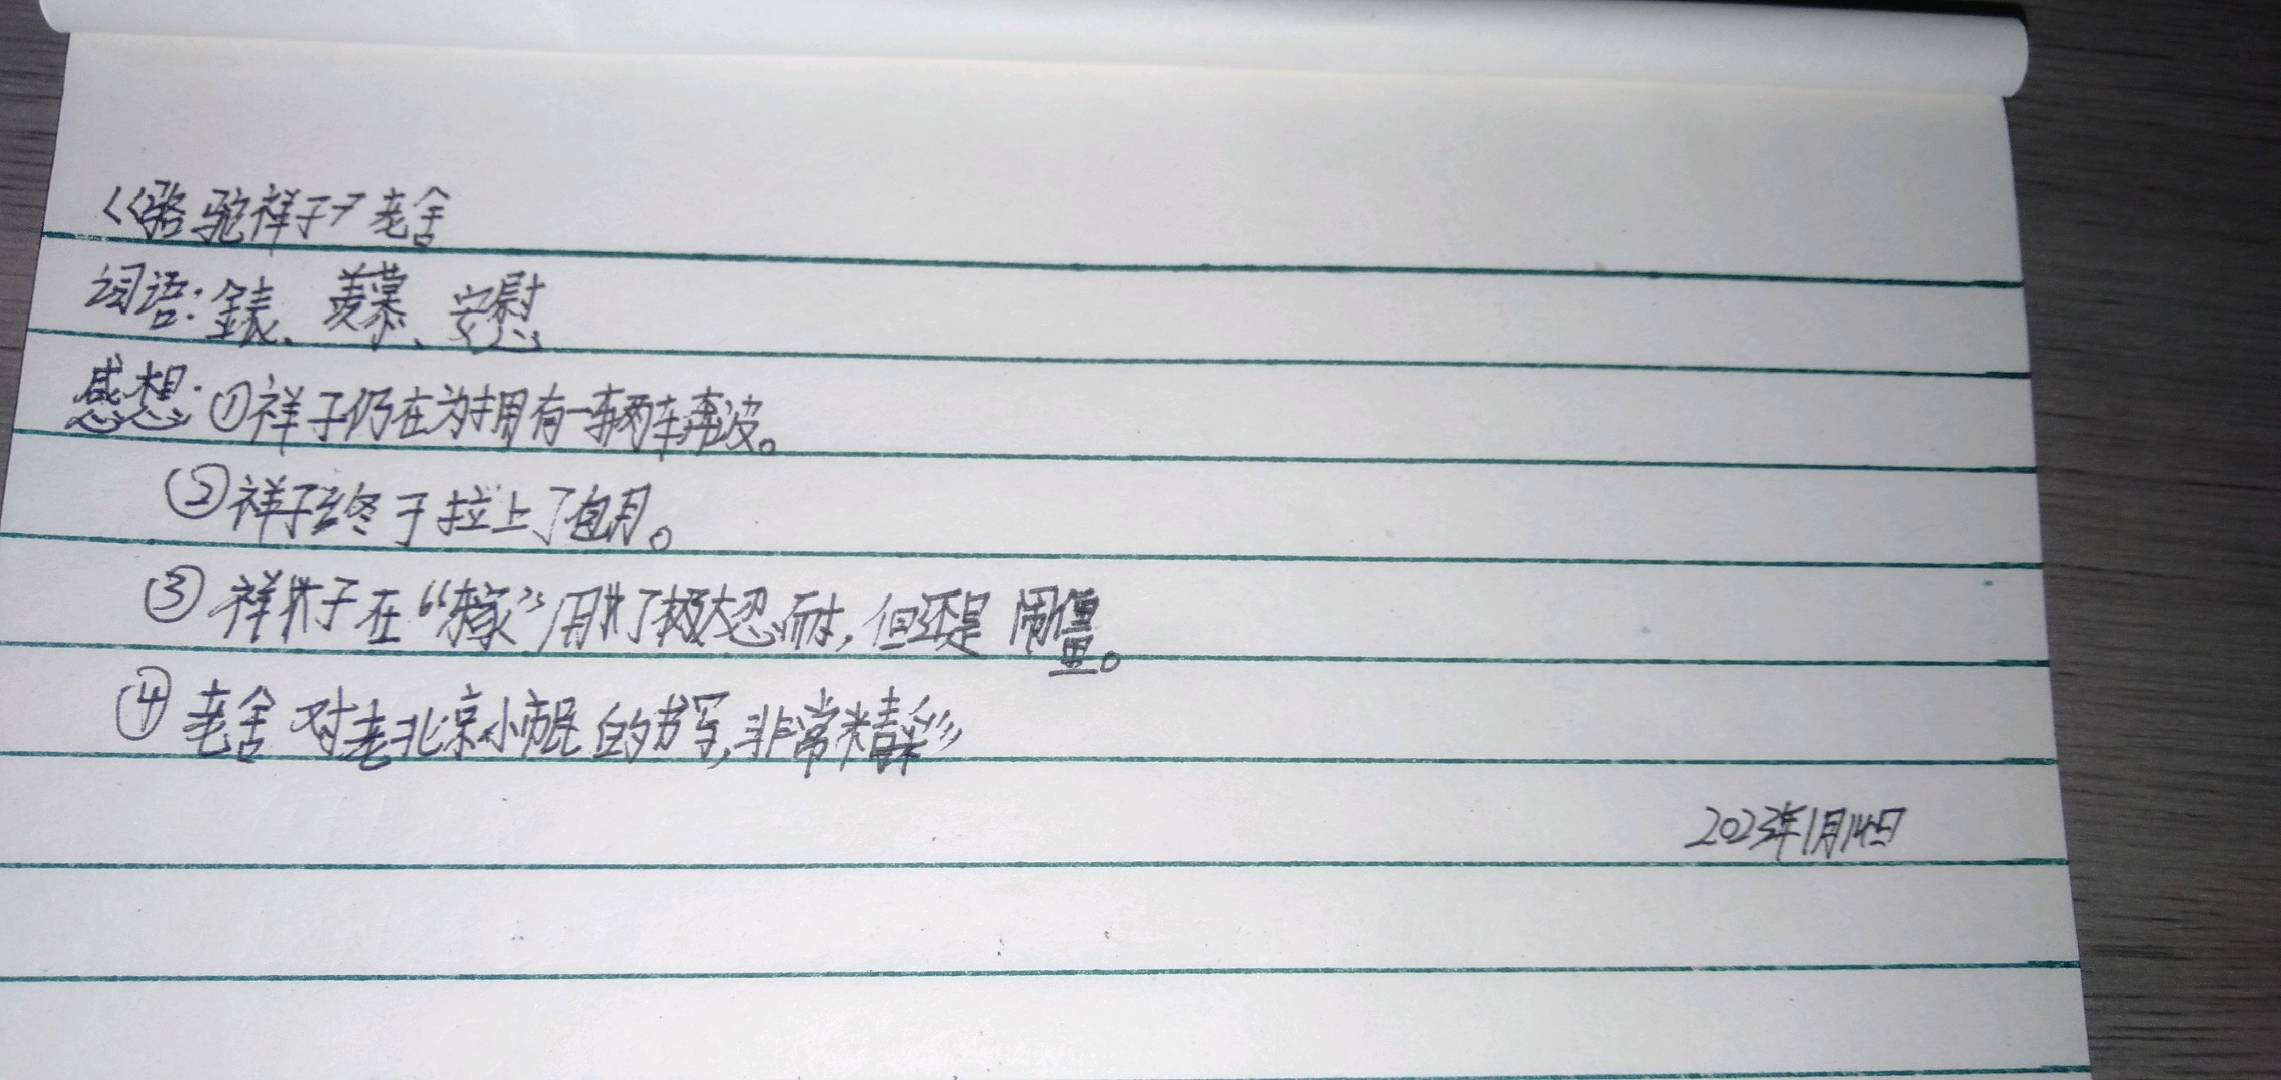 《骆驼祥子》老舍
词语:金表、羡慕、安慰
感想:①祥子仍在为拥有一辆车奔波。
②祥子终于拉上了包月。
③祥子在“东家”用了极大忍耐,但还是闹僵。
④老舍对老北京小市民的书写,非常精彩
2023年1月14日